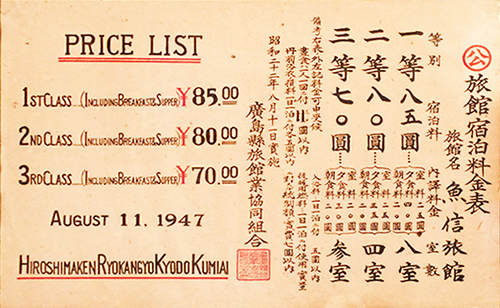 PRICE LIST
1ST CLASS (INCLUDING BREAKFAST & SUPPER) ¥85.00
2ND CLASS (INCLUDING BREAKFAST & SUPPER) ¥80.00
3RD CLASS (INCLUDING BREAKFAST & SUPPER) ¥70.00
AUGUST 11, 1947
HIROSHIMAKEN RYOKANGYO KYODO KUMIAI
公 旅館宿泊料金表
旅館名 魚信旅館
等別 宿泊料 內譯料金 室數
一等 八五圓 室料 夕食料 朝食料 八室
二等 八〇圓 室料 夕食料 朝食料 四室
三等 七〇圓 室料 夕食料 朝食料 参室
備考 右表外左記料金可申受候
入浴料 一日一人ニ付 五圓以内
昭和二十二年八月十一日実施
廣島縣旅館業協同組合